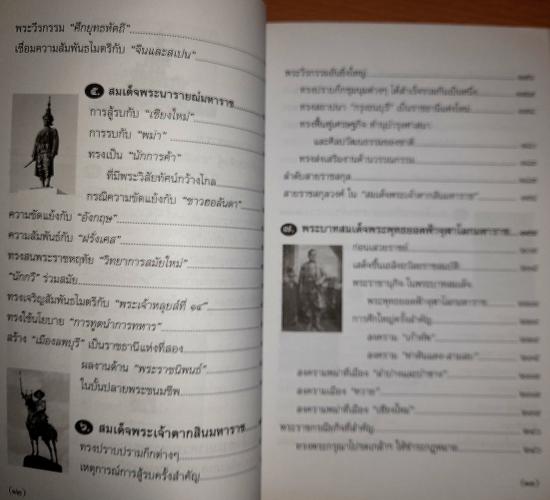 พระวีรกรรม "ศึกยุทธหัตถี"
เชื่อมความสัมพันธไมตรีกับ "จีนและสเปน"
๕ สมเด็จพระนารายณ์มหาราช
การสู้รบกับ "เชียงใหม่"
การรบกับ "พม่า"
ทรงเป็น "นักการค้า"
ที่มีพระวิสัยทัศน์กว้างไกล
กรณีความขัดแย้งกับ "ชาวฮอลันดา"
ความขัดแย้งกับ "อังกฤษ"
ความสัมพันธ์กับ "ฝรั่งเศส"
ทรงสนพระราชหฤทัย "วิทยาการสมัยใหม่"
"นักกวี" ร่วมสมัย
ทรงเจริญสัมพันธไมตรีกับ "พระเจ้าหลุยส์ที่ ๑๔"
ทรงใช้นโยบาย "การทูตนำการทหาร"
สร้าง "เมืองลพบุรี" เป็นราชธานีแห่งที่สอง
ผลงานด้าน "พระราชนิพนธ์"
ในบั้นปลายพระชนมชีพ
๖ สมเด็จพระเจ้าตากสินมหาราช
ทรงปราบปรามก๊กต่างๆ
เหตุการณ์การสู้รบครั้งสำคัญ
(๑๒)
พระวีรกรรมอันยิ่งใหญ่
ทรงปราบก๊กชุมนุมต่างๆ ได้สำเร็จรวมกันเป็นหนึ่ง
ทรงสถาปนา "กรุงธนบุรี" เป็นราชธานีแห่งใหม่
ทรงฟื้นฟูเศรษฐกิจ ทำนุบำรุงศาสนา
และศิลปวัฒนธรรมของชาติ
ทรงส่งเสริมงานด้านวรรณกรรม
ลำดับสายราชสกุล
สายราชสกุลวงศ์ ใน "สมเด็จพระเจ้าตากสินมหาราช"
๗ พระบาทสมเด็จพระพุทธยอดฟ้าจุฬาโลกมหาราช
ก่อนเสวยราชย์
เสด็จขึ้นเถลิงถวัลยราชสมบัติ
พระราชานุกิจ ในพระบาทสมเด็จ
พระพุทธยอดฟ้าจุฬาโลกมหาราช
การศึกใหญ่ครั้งสำคัญ
สงคราม "เก้าทัพ"
สงคราม "ท่าดินแดง-สามสบ"
สงครามพม่าที่เมือง "ลำปางและป่าซาง"
สงครามเมือง "ทวาย"
สงครามพม่าที่เมือง "เชียงใหม่"
พระราชกรณียกิจที่สำคัญ
ทรงพระกรุณาโปรดเกล้าฯ ให้ชำระกฎหมาย
(๑๓)